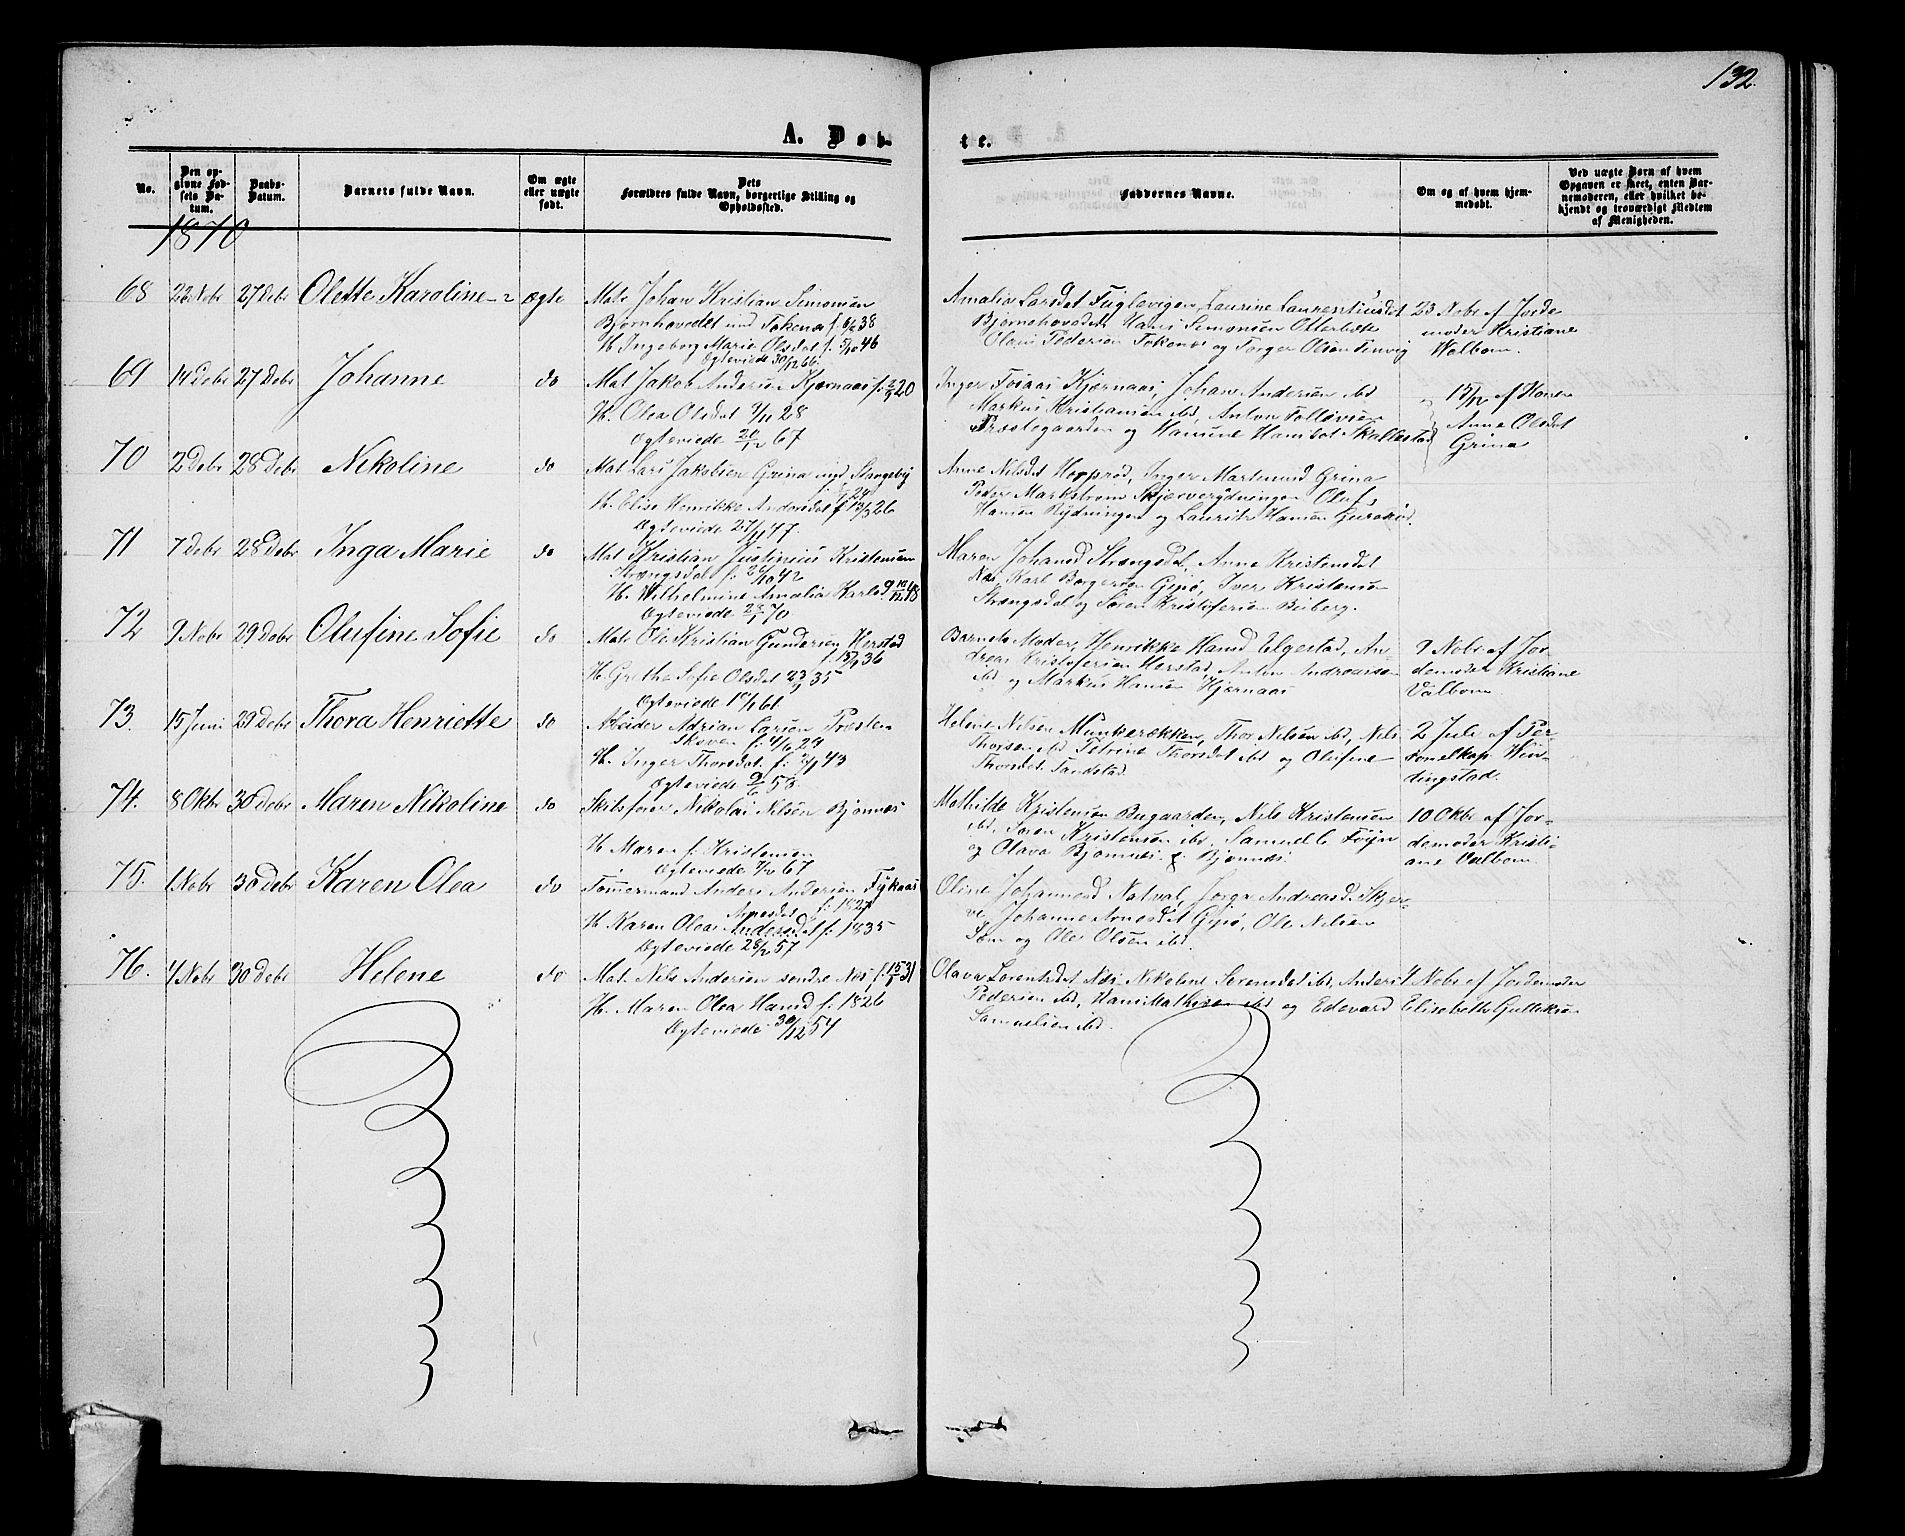 132.
A. Døb-
te.
No.
Den op-
givne Fød-
sels Da-
tum.
Daabs-
Datum.
Barnets fulde Navn.
Om ægte
eller uægte
født.
Dets
Forældres fulde Navn, borgerlige Stilling og
Opholdssted.
Faddernes Navne.
Om og af hvem hjem-
medøbt.
Ved uægte Børn af hvem
Opgaven er skeet, enten Bar-
nemoderen, eller hvilket be-
kjendt og troværdigt Medlem
af Menigheden.
1870
68 22 Nobr 27 Debr Olette Karoline ægte Mat. Johan Kristian Simonsen
Bjørnhovedet ved Tokenæs f. 6/2 38
H. Ingeborg Marie Olsdat f. 5/10 46
Ægteviede 30/12 66
Amalia Larsdat Fuglevigen, Laurine Laurentiusdat
Bjørnehovedet, Hans Simonsen Otterbæk
Olaus Pedersen Tokenæs og Torger Olsen
23 Nobr af Jorde
moder Kristiane
Walbom.
69 14 Debr 27 Debr Johanne do Mat. Jakob Andersen Kjærnaas f. 20
H. Olea Olsdat 28
Ægteviede 67
Inger Tosaas Kjærnaas, Johan Andersen ibd
Markus Kristiansen ibd, Anton Tollevsen
Præstegaarden og Hansine Hansdat Skallestad
15/12 af Kone
Anne Olsdat
Grina
70 2 Debr 28 Debr Nikoline do Mat. Lars Jakobsen Grina ved Stangeby
H. Elise Henrikke Andersdat f 13/3 26
Ægteviede 27/11 47.
Anne Nilsdat Hopprød, Inger Grina
Peder Markstrøm Skjærverydningen Oluf
Hansen Rydningen og Laurits Hansen
71 7 Debr 28 Debr Inga Marie do Mat. Kristian Justinius Kristensen
Strængsdal f: 26/10 42
H. Wilhelmine Amalia 48
Ægteviede 70
Maren Johansd Strængsdal, Anne Kristensdat
Næs, Karl Borgersen Gipø, Iver Kristensen
Strængsdal og Søren Kristofersen Buberg.
72 9 Nobr 29 Debr Olufine Sofie do Mat. Ole Kristian Gundersen Herstad
36
H. Grethe Sofie Olsdat 35
Ægteviede 66
Barnets Moder, Henrikke Hansd Elgestad, An-
dreas Kristofersen Herstad, Anton Andreassen
ibd og Markus Hansen Kjærnaas
9 Nobr af Jor-
demoder Kristiane
Valbom.
73. 15 Juni 29 Debr Thora Henriette do Arbeider Adrian Larsen Præste-
skoven f: 4/6 29
H. Inger Thorsdat f: 43
Ægteviede
Helene Nilsen Munkerækken, Thor Nilsen ibd, Nils
Thorsen ibd Petrine Thorsdat ibd og Olufine
Thorsdat Sandstad
2 Juli af Per-
sonelkap Win-
dingstad.
74. 8 Oktbr 30 Debr Maren Nikoline do Skibsfører Nikolai Nilsen Bjønnes
H. Maren f: Kristensen
Ægteviede 67
Mathilde Kristensen Bugaarden, Nils Kristensen
ibd, Søren Kristensen ibd. Samuel Foyn
og Olava Bjønnes. Bjønnes.
10 Oktbr af Jor-
demoder Kristi-
ane Valbom.
75. 1 Nobr 30 Debr Karen Olea do Tømmermand Anders Andersen
Arnesdat f: 1827
H. Karen Olea Andersdat f: 1835
Ægteviede 28/12 57
Oline Johannesd Natval, Andreasd Skjer-
ve, Johanne Arnesdat Gipø, Ole Nilsen
Sem og Ole Olsen ibd.
76. 4 Nobr 30 Debr Helene do Mat. Nils Andersen søndre Næs f: 31
H. Maren Olea Hansd f: 1826
Ægteviede 30/12 54
Olava Lorentsdat Næs Nikoline Sørensdat ibd, Anders
Pedersen ibd, Hans Mathisen ibd og Edevard
Samuelsen ibd.
4 Nobr af Jordemoder
Elisabeth Gulliksen